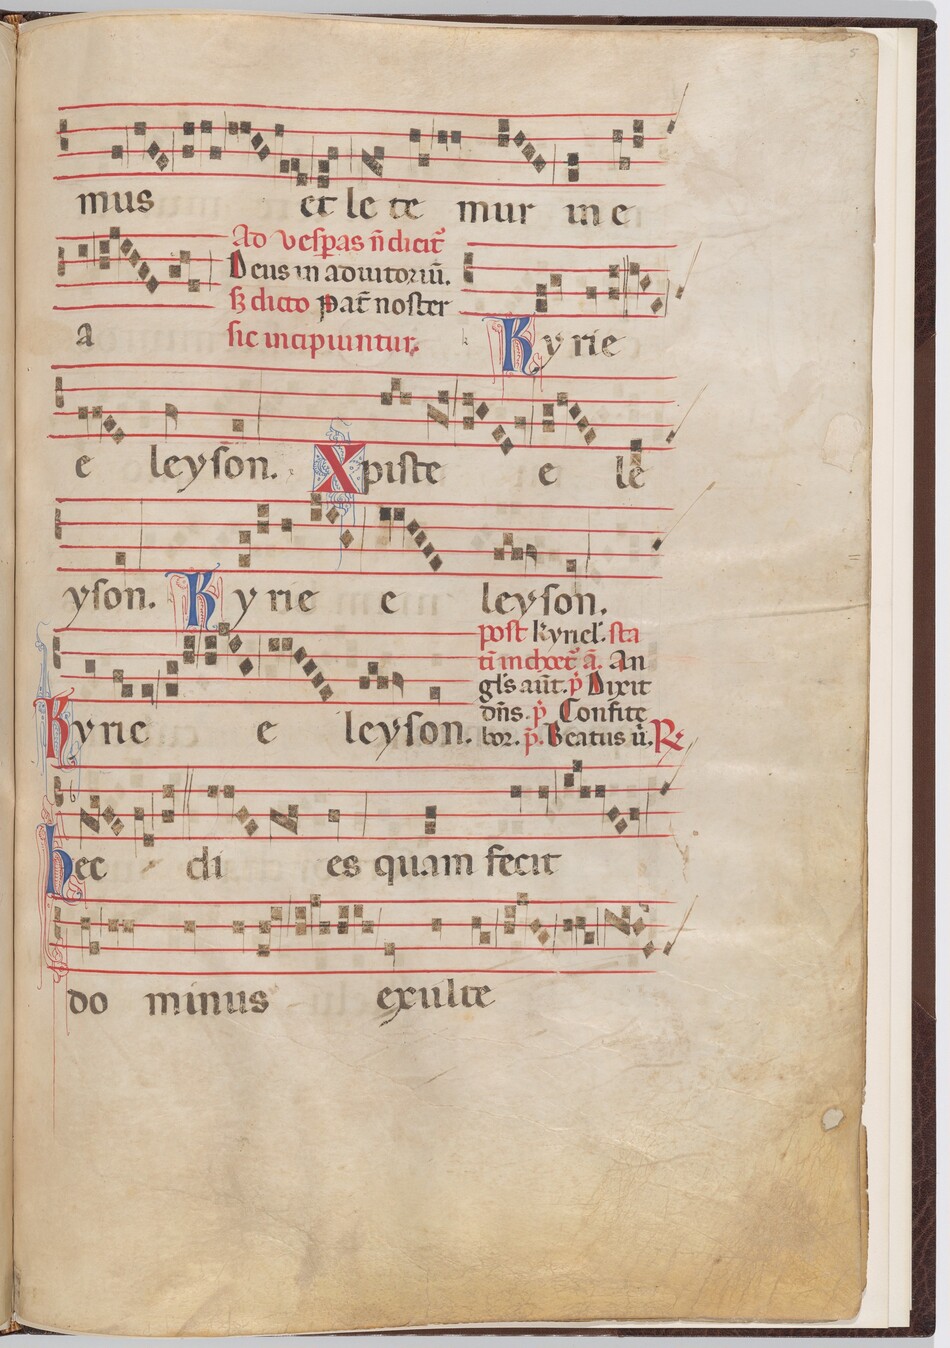 5
mus et le te mur in e
Ad vesp̱as n̄ dicit᷑
Deus in adiutoriū.
ſꝫ dicto pat̄ noster
a sic incipiuntur. Kyrie
e leyson. Xpiste e le
yson. Kyrie e leyson.
post kyriel. sta
tī in choro
Kyrie e leyson.
a. An
gl's aūt. p̄ Dixit
dn̄s. p̄ Confite
bor. p̄. Beatus ū. R
hec di es quam fecit
do minus exulte